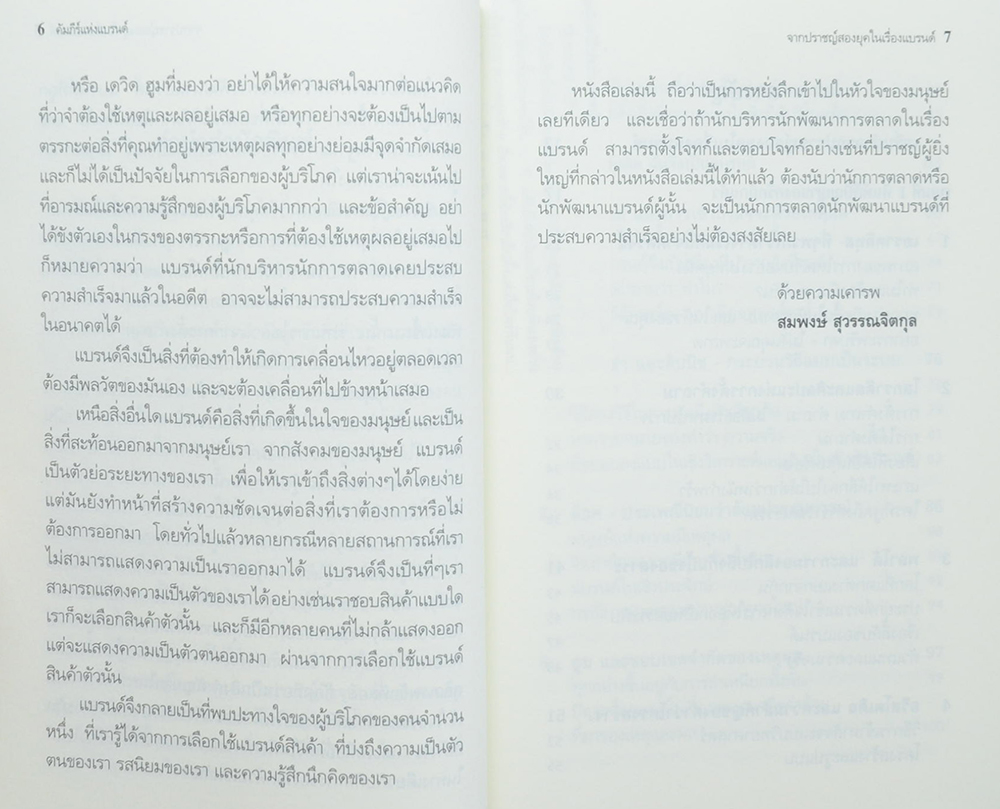 6 คัมภีร์แห่งแบรนด์
หรือ เดวิด ฮูมที่มองว่า อย่าได้ให้ความสนใจมากต่อแนวคิด
ที่ว่าจำต้องใช้เหตุและผลอยู่เสมอ หรือทุกอย่างจะต้องเป็นไปตาม
ตรรกะต่อสิ่งที่คุณทำอยู่เพราะเหตุผลทุกอย่างย่อมมีจุดจำกัดเสมอ
และก็ไม่ได้เป็นปัจจัยในการเลือกของผู้บริโภค แต่เราน่าจะเน้นไป
ที่อารมณ์และความรู้สึกของผู้บริโภคมากกว่า และข้อสำคัญ อย่า
ได้ขังตัวเองในกรงของตรรกะหรือการที่ต้องใช้เหตุผลอยู่เสมอไป
ก็หมายความว่า แบรนด์ที่นักบริหารนักการตลาดเคยประสบ
ความสำเร็จมาแล้วในอดีต อาจจะไม่สามารถประสบความสำเร็จ
ในอนาคตได้
แบรนด์จึงเป็นสิ่งที่ต้องทำให้เกิดการเคลื่อนไหวอยู่ตลอดเวลา
ต้องมีพลวัตของมันเอง และจะต้องเคลื่อนที่ไปข้างหน้าเสมอ
เหนือสิ่งอื่นใดแบรนด์คือสิ่งที่เกิดขึ้นในใจของมนุษย์และเป็น
สิ่งที่สะท้อนออกมาจากมนุษย์เรา จากสังคมของมนุษย์ แบรนด์
เป็นตัวย่อระยะทางของเรา เพื่อให้เราเข้าถึงสิ่งต่างๆได้โดยง่าย
แต่มันยังทำหน้าที่สร้างความชัดเจนต่อสิ่งที่เราต้องการหรือไม่
ต้องการออกมา โดยทั่วไปแล้วหลายกรณีหลายสถานการณ์ที่เรา
ไม่สามารถแสดงความเป็นเราออกมาได้ แบรนด์จึงเป็นที่ๆเรา
สามารถแสดงความเป็นตัวของเราได้อย่างเช่นเราชอบสินค้าแบบใด
เราก็จะเลือกสินค้าตัวนั้น และก็มีอีกหลายคนที่ไม่กล้าแสดงออก
แต่จะแสดงความเป็นตัวตนออกมา ผ่านจากการเลือกใช้แบรนด์
สินค้าตัวนั้น
แบรนด์จึงกลายเป็นที่พบปะทางใจของผู้บริโภคของคนจำนวน
หนึ่ง ที่เรารู้ได้จากการเลือกใช้แบรนด์สินค้า ที่บ่งถึงความเป็นตัว
ตนของเรา รสนิยมของเรา และความรู้สึกนึกคิดของเรา
จากปราชญ์สองยุคในเรื่องแบรนด์ 7
หนังสือเล่มนี้ ถือว่าเป็นการหยั่งลึกเข้าไปในหัวใจของมนุษย์
เลยทีเดียว และเชื่อว่าถ้านักบริหารนักพัฒนาการตลาดในเรื่อง
แบรนด์ สามารถตั้งโจทก์และตอบโจทก์อย่างเช่นที่ปราชญ์ผู้ยิ่ง
ใหญ่ที่กล่าวในหนังสือเล่มนี้ได้ทำแล้ว ต้องนับว่านักการตลาดหรือ
นักพัฒนาแบรนด์ผู้นั้น จะเป็นนักการตลาดนักพัฒนาแบรนด์ที่
ประสบความสำเร็จอย่างไม่ต้องสงสัยเลย
ด้วยความเคารพ
สมพงษ์ สุวรรณจิตกุล